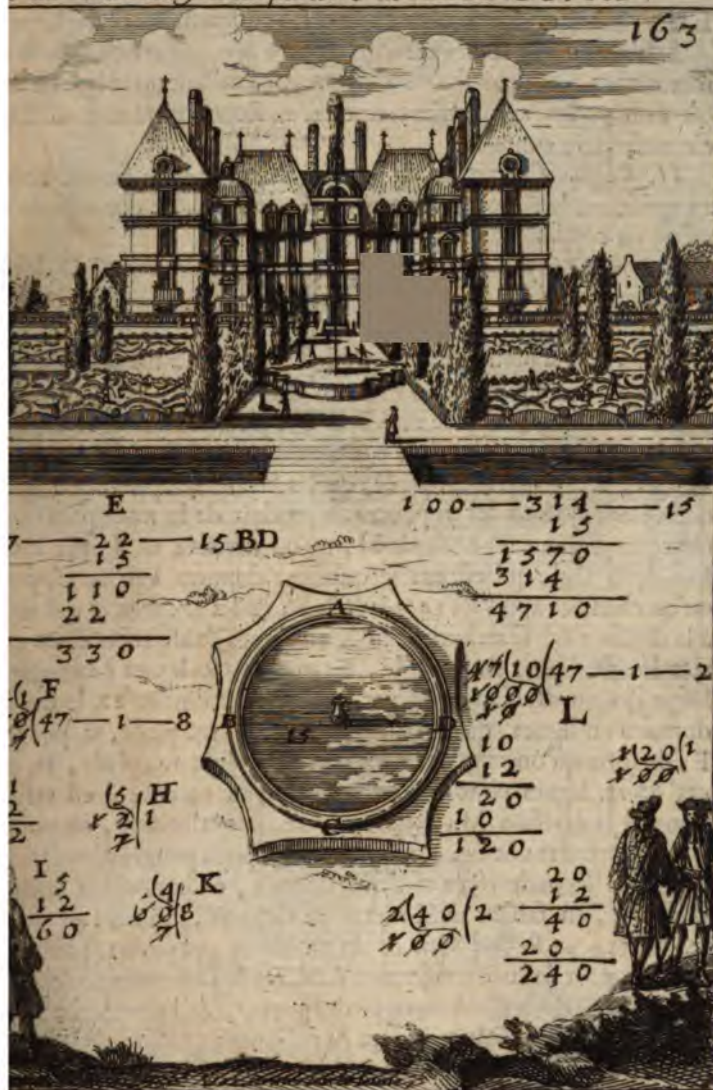 163
E
7 — 22 — 15 BD
15
110
22
330
100 — 314 — 15
15
1570
314
4710
A
B
D
15
C
F
47 — 1 — 8
47(10(47 — 1 — 2
1000
10
L
10
12
20
10
120
1(20(1
100
H
(5
1 2(1
7
2
2
I
5
12
60
K
(4
6 0(8
7
2(40(2
100
20
12
40
20
240